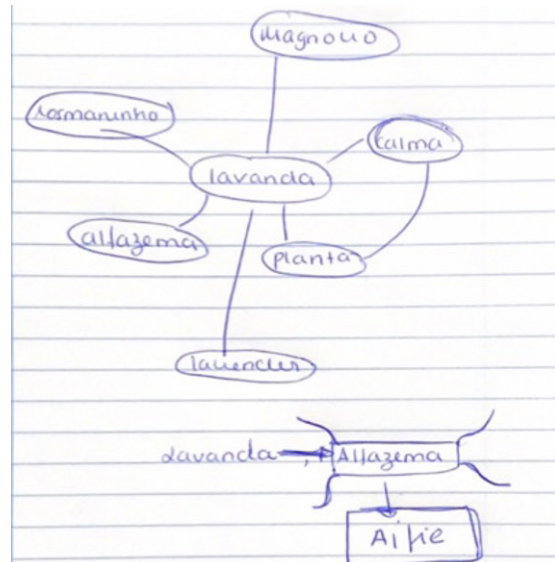 magnolio
rosmaninho
calma
lavanda
alfazema
planta
lavender
Lavanda
Alfazema